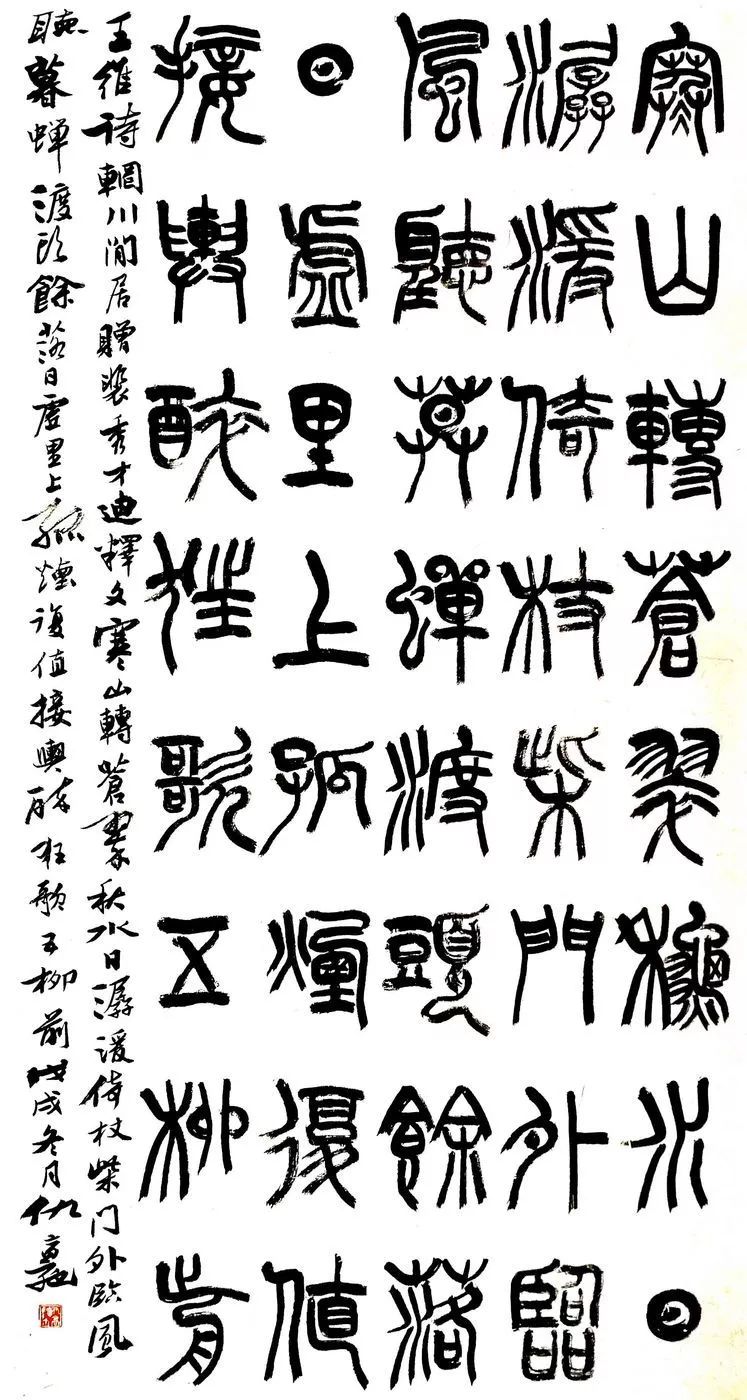 寒山轉蒼翠秋水日
潺湲倚杖柴門外臨
風聽暮蟬渡頭餘落
日虛里上孤煙復值
接輿醉狂歌五柳前
王維詩輞川閒居贈裴秀才迪釋文寒山轉蒼翠秋水日潺湲倚杖柴门外臨風
聽暮蟬渡头餘落日虛里上孤煙復值接輿醉狂歌五柳前戊戌冬月仇